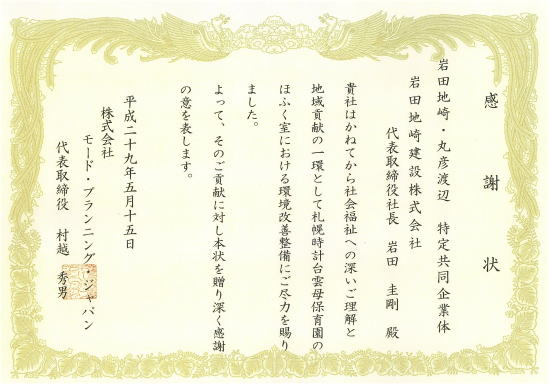 感謝状
岩田地崎・丸彦渡辺　特定共同企業体
岩田地崎建設株式会社
代表取締役社長　岩田　圭剛　殿
貴社はかねてから社会福祉への深いご理解と
地域貢献の一環として札幌時計台雲母保育園の
ほふく室における環境改善整備にご尽力を賜り
ました。
よって、そのご貢献に対し本状を贈り深く感謝
の意を表します。
平成二十九年五月十五日
株式会社
モード・プランニング・ジャパン
代表取締役　村越　秀男